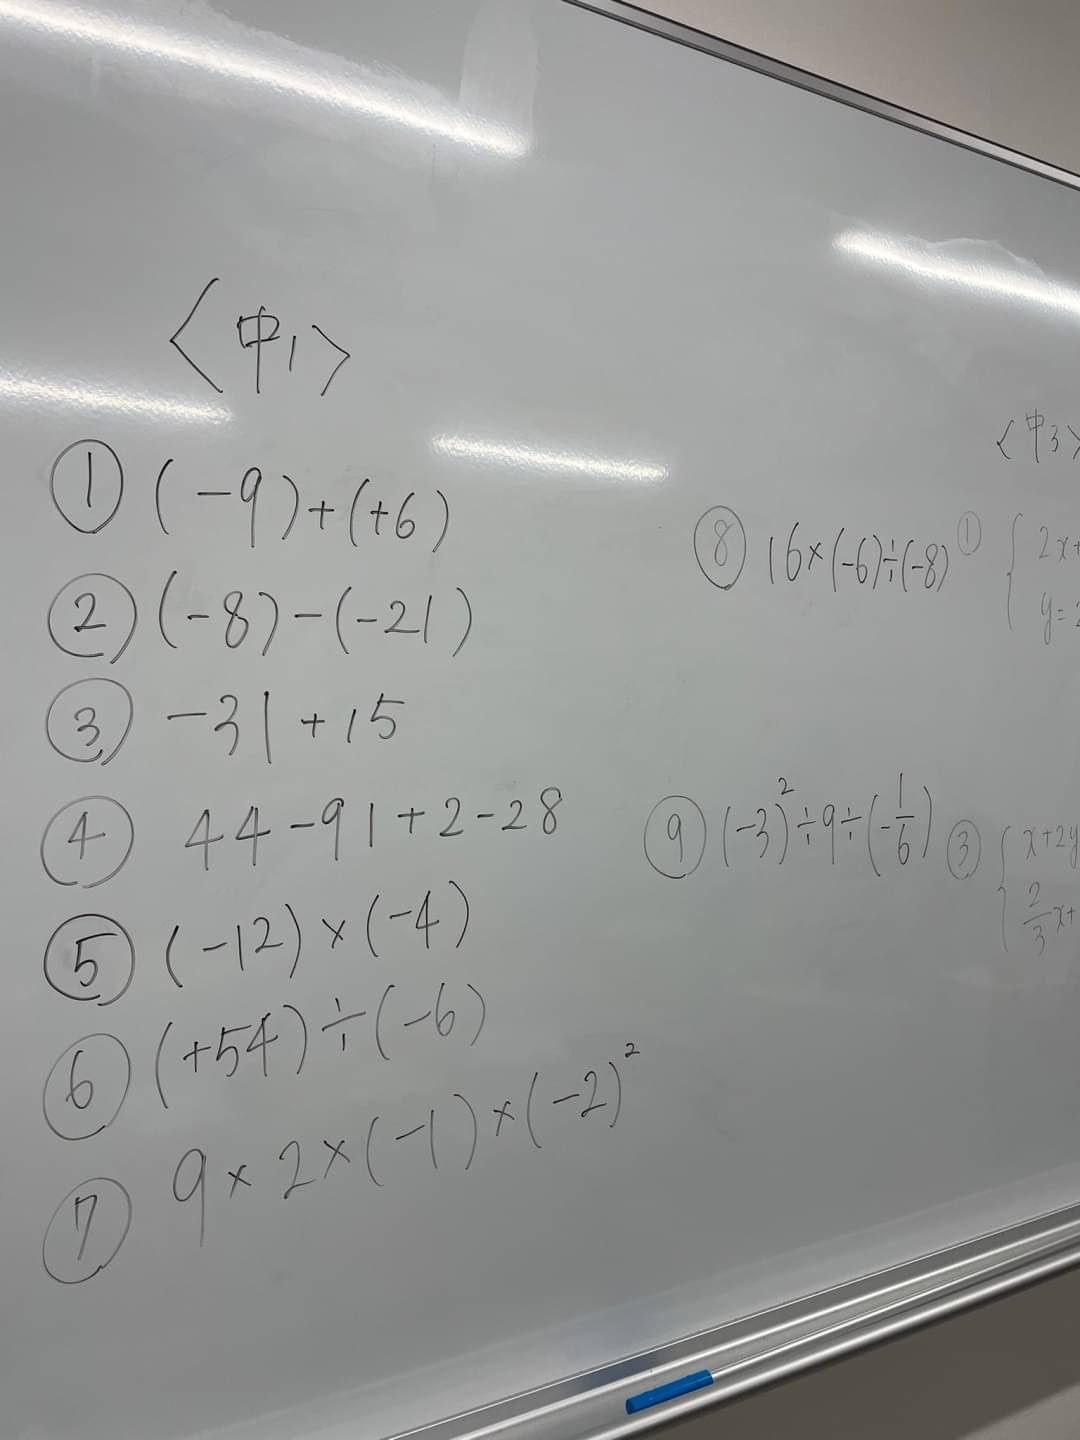 〈中1〉
① (-9)+(+6)
② (-8)-(-21)
③ -31+15
④ 44-91+2-28
⑤ (-12)×(-4)
⑥ (+54)÷(-6)
⑦ 9×2×(-1)×(-2)²
⑧ 16×(-6)÷(-8)
⑨ (-3)²÷9÷(-1/6)
〈中3〉
① { 2x+
y=
③ { x+2y
2/3x+